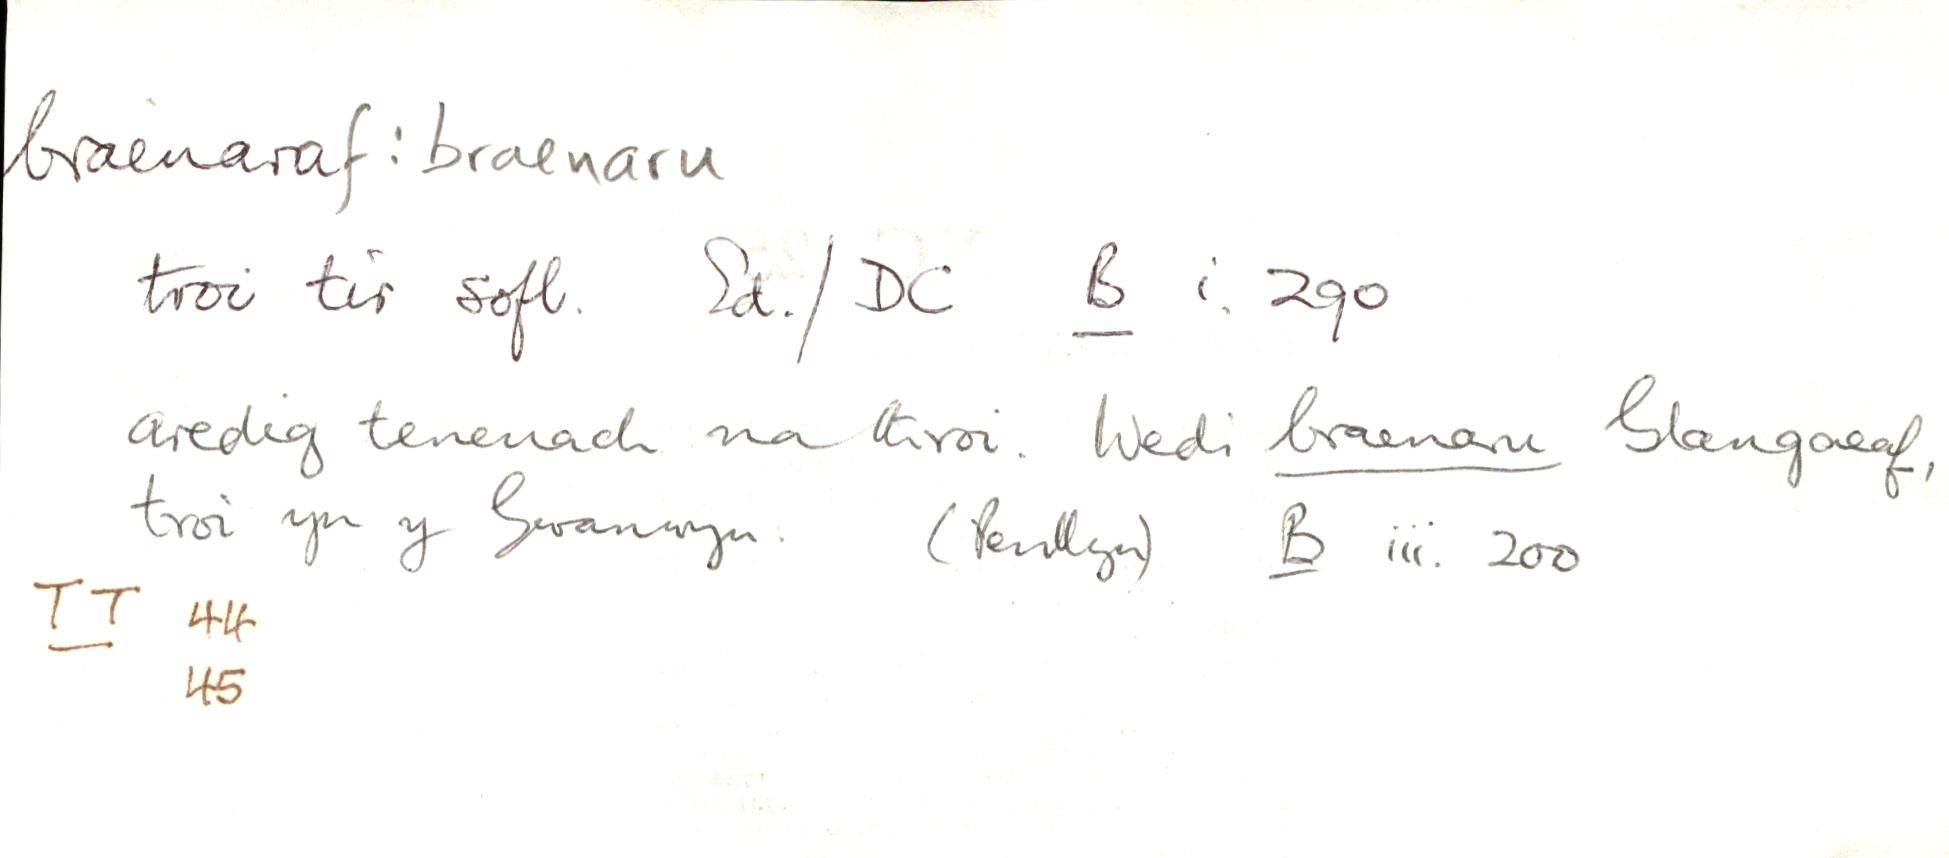 braenaraf : braenaru
troi tir sofl. Ed./DC B i. 290
aredig tenenach na throi. Wedi braenaru Glangaeaf,
troi yn y Gwanwyn. (Penllyn) B iii. 200
TT 44
45